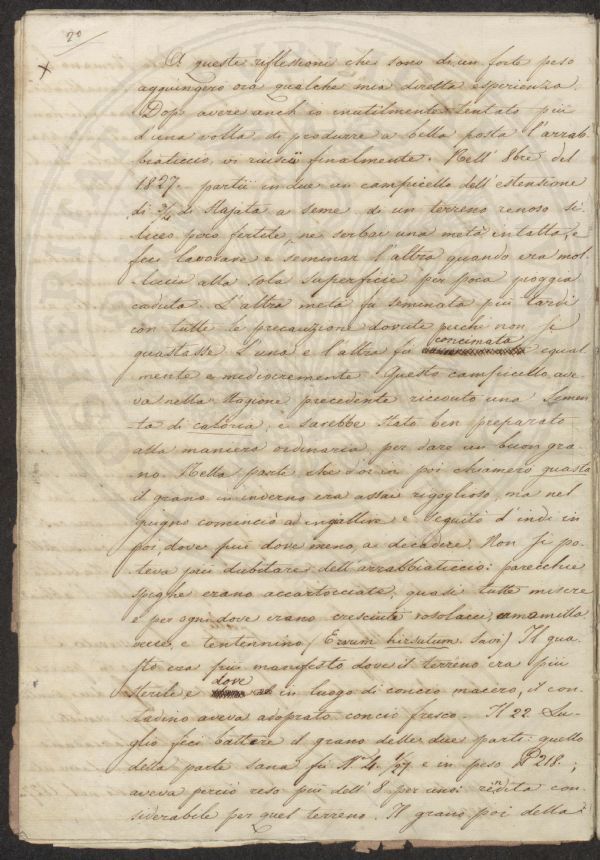 20
A queste riflessioni che sono di un forte peso
aggiungerò ora qualche mia diretta esperienza.
Dopo avere anch'io inutilmente tentato più
d'una volta di produrre a bella posta l'arrab-
biaticcio, vi riuscii finalmente. Nell'8bre del
1827. partii in due un campicello dell'estensione
di 3/4 di stajata a seme di un terreno renoso si-
liceo poco fertile, ne serbai una metà intatta, e
feci lavorare e seminar l'altra quando era mol-
liccia alla sola superficie per poca pioggia
caduta. L'altra metà fu seminata più tardi
con tutte le precauzioni dovute perchè non si
guastasse. L'una e l'altra fu concimata equal-
mente e mediocremente. Questo campicello ave-
va nella stagione precedente ricevuto una semen-
ta di caloria, e sarebbe stato ben preparato
alla maniera ordinaria per dare un buon gra-
no. Nella parte che d'ora in poi chiamerò guasta
il grano in inverno era assai rigoglioso, ma nel
giugno cominciò ad ingallire e seguitò d'indi in
poi, dove più dove meno, a decadere. Non si po-
teva più dubitare dell'arrabbiaticcio: parecchie
spighe erano accartocciate, quasi tutte misere
e per ogni dove erano cresciute rosolacci, camamilla
vecce, e tentennino (Ervum hirsutum. Savi) Il gua-
sto era più manifesto dove il terreno era più
sterile e dove in luogo di concio macero, il con-
tadino aveva adoprato concio fresco. Il 22 Lu-
glio feci battere il grano delle due parti: quello
della parte sana fu St. 4. 1/27 e in peso ℔ 218.;
aveva perciò reso più dell'8 per uno: rendita con-
siderabile per quel terreno. Il grano poi della